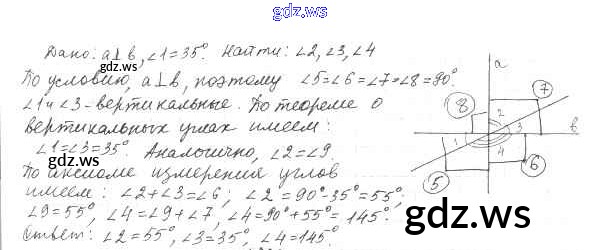 gdz.ws
Дано: a⊥b, ∠1=35°. Найти: ∠2, ∠3, ∠4
По условию, a⊥b, поэтому ∠5=∠6=∠7=∠8=90°
∠1 и ∠3 - вертикальные. По теореме о
вертикальных углах имеем:
∠1=∠3=35°. Аналогично, ∠2=∠9.
По аксиоме измерения углов
имеем: ∠2+∠3=∠6; ∠2=90°-35°=55°;
∠9=55°, ∠4=∠9+∠7, ∠4=90°+55°=145°.
Ответ: ∠2=55°, ∠3=35°, ∠4=145°
a
7
8
2
3
b
1
4
5
6
gdz.ws
gdz.ws
gdz.ws
gdz.ws